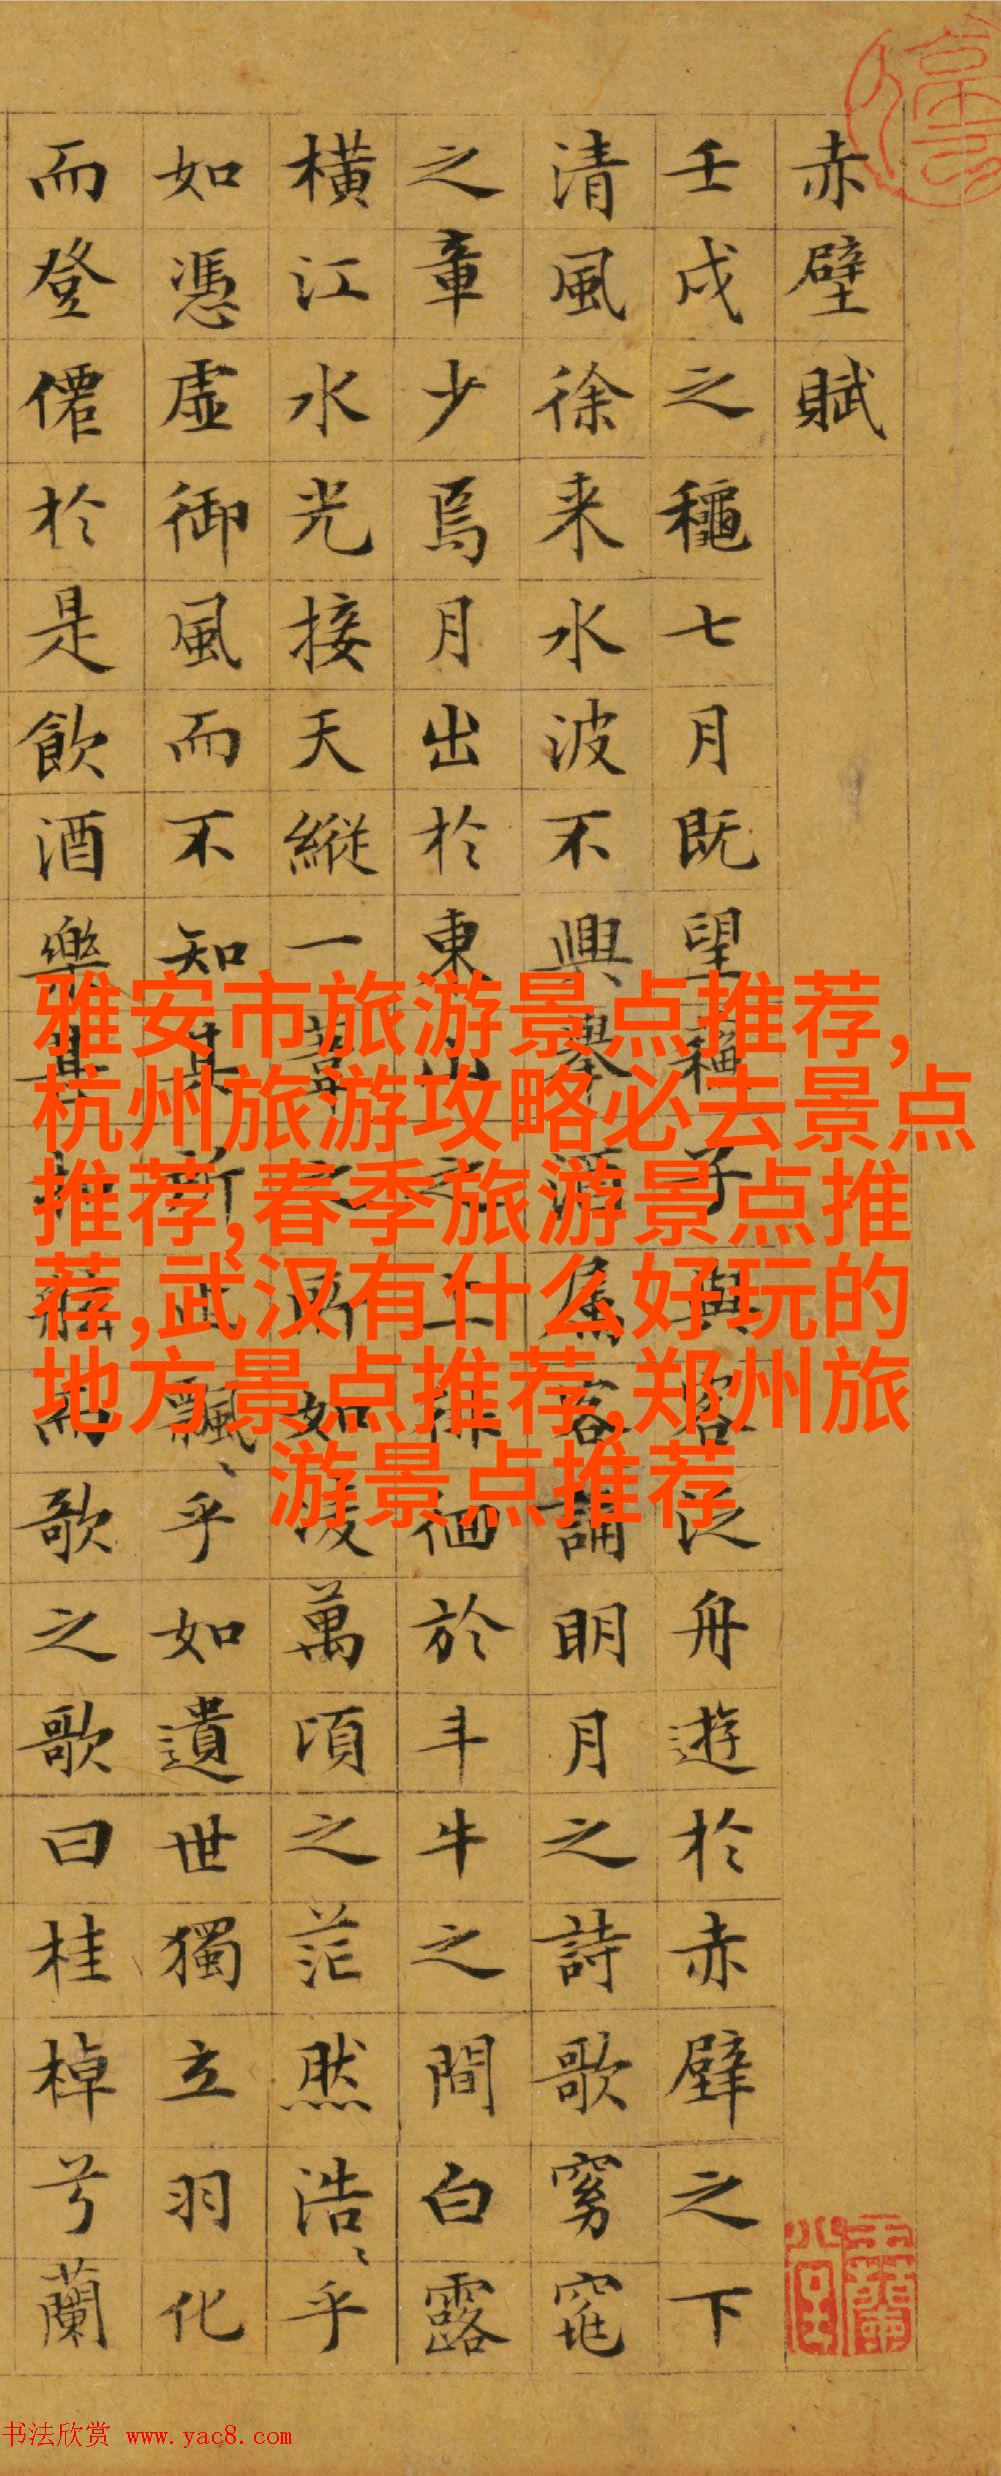 赤壁賦
壬戌之龝七月既望蘓子與客泛舟遊於赤壁之下
清風徐来水波不興舉酒屬客誦明月之詩歌窈窕
之章少焉月出於東山之上徘徊於斗牛之間白露
橫江水光接天縱一葦之所如凌萬頃之茫然浩〻乎
如憑虛御風而不知其所止飄〻乎如遺世獨立羽化
而登僊於是飲酒樂甚扣舷而歌之歌曰桂棹兮蘭
雅安市旅游景点推荐,
杭州旅游攻略必去景点
推荐,春季旅游景点推
荐,武汉有什么好玩的
地方景点推荐,郑州旅
游景点推荐
书法欣赏 www.yac8.com